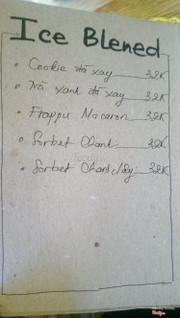 Ice Blened
• Cookie đá xay 32K
• Trà xanh đá xay 32K
• Frappu Macaron 32K
• Sorbet Chanh 32K
• Sorbet Chanh dây 32K